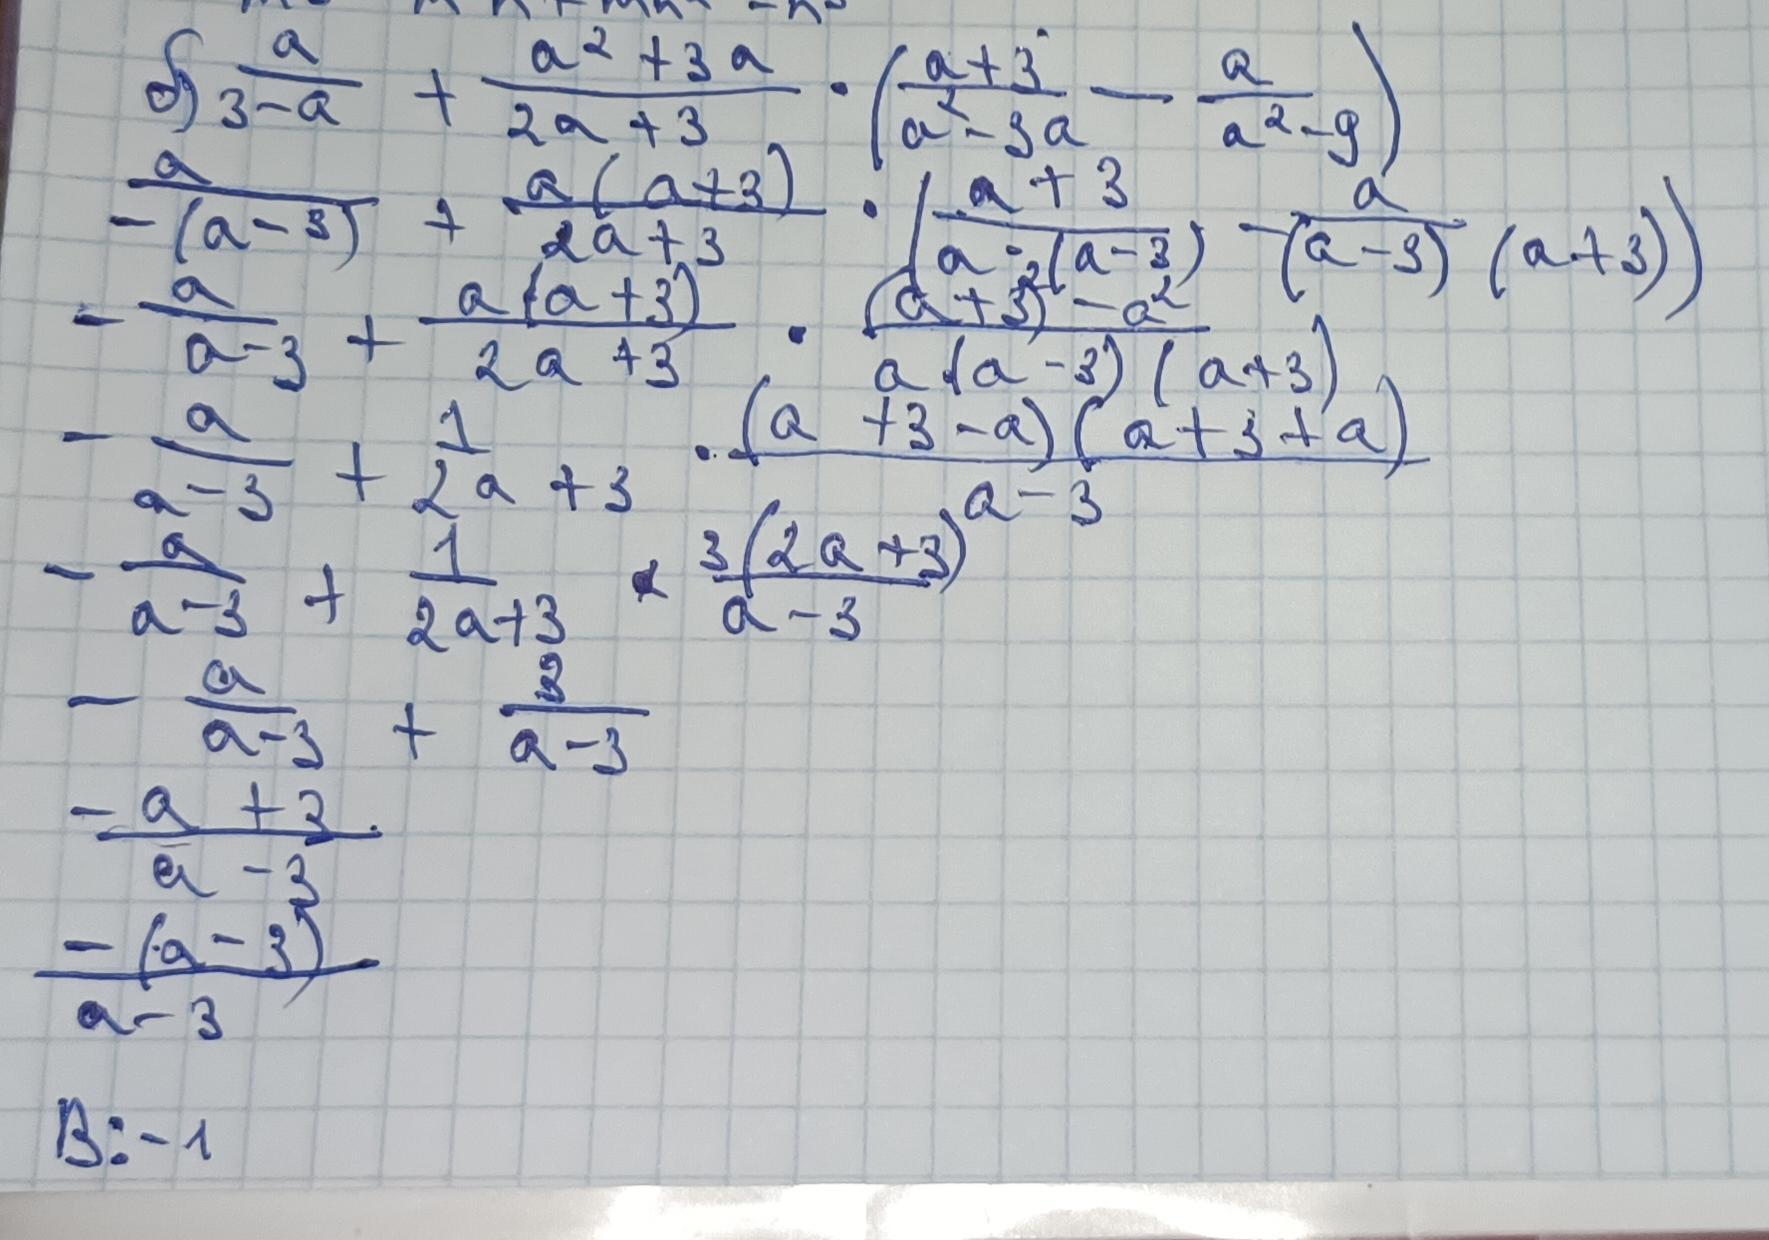 б) a/(3-a) + (a²+3a)/(2a+3) · ((a+3)/(a²-3a) - a/(a²-9))
a/(-(a-3)) + a(a+3)/(2a+3) · ((a+3)/(a·(a-3)) - a/((a-3)(a+3)))
- a/(a-3) + a(a+3)/(2a+3) · ((a+3)²-a²)/(a(a-3)(a+3))
- a/(a-3) + 1/(2a+3) · (a+3-a)(a+3+a)/(a-3)
- a/(a-3) + 1/(2a+3) · 3(2a+3)/(a-3)
- a/(a-3) + 3/(a-3)
(-a+3)/(a-3)
-(a-3)/(a-3)
В:-1